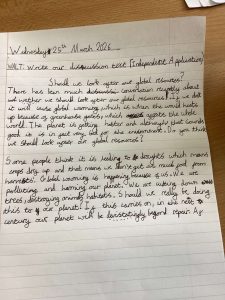 Wednesday 25th March 2026
WALT: Write our discussion text (Independent Application)
Should we look after our global resources?
There has been much conversation recently about
whether we should look after our global resources. If we don't
it will cause global warming which is when the world heats
up because of greenhouse gasses which affects the whole
world. The planet is getting hotter and although that sounds
good it is in fact very bad for the environment. Do you think
we should look after our global resources?
Some people think it is leading to droughts which means
crops dry up and that means we don't get as much food from
harvests. Global warming is happening because of us. We are
polluting and harming our planet. We are cutting down
trees, destroying animals habitats. Should we really be doing
this to our planet? If this carries on, in the next
century our planet will be devastatingly beyond repair.